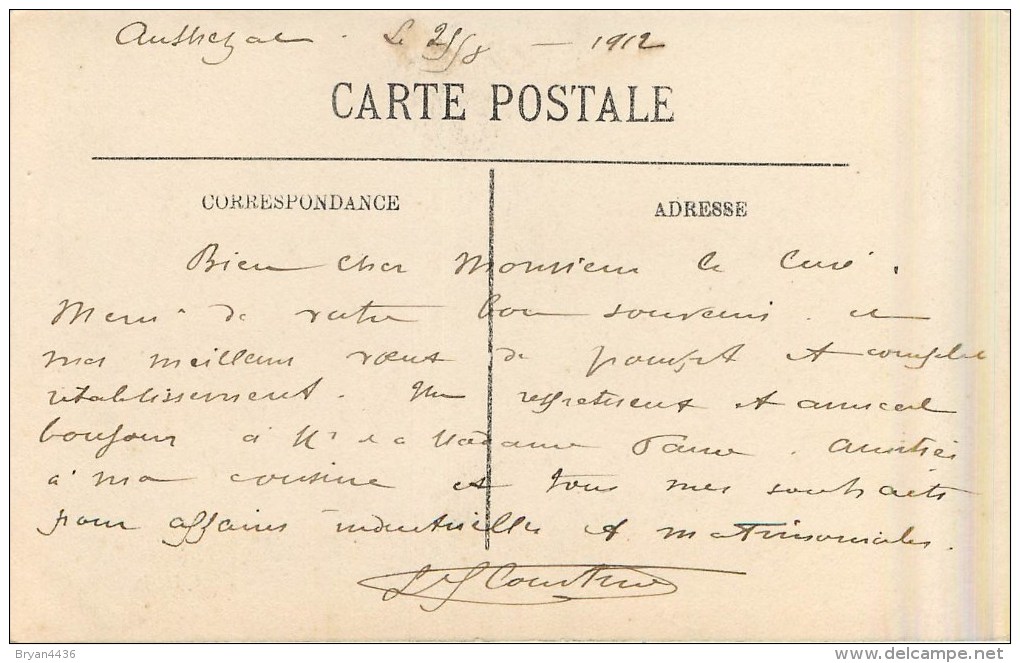 Le 25/8 — 1912
CARTE POSTALE
CORRESPONDANCE
ADRESSE
Bien cher Monsieur le Curé.
Merci de votre bon souvenir et
mes meilleurs vœux de prompt et complet
rétablissement. Un respectueux et amical
bonjour à Mr et à Madame Amitiés
à ma cousine et tous mes souhaits
pour affaires industrielles et matrimoniales.
Bryan4436
delcampe.net